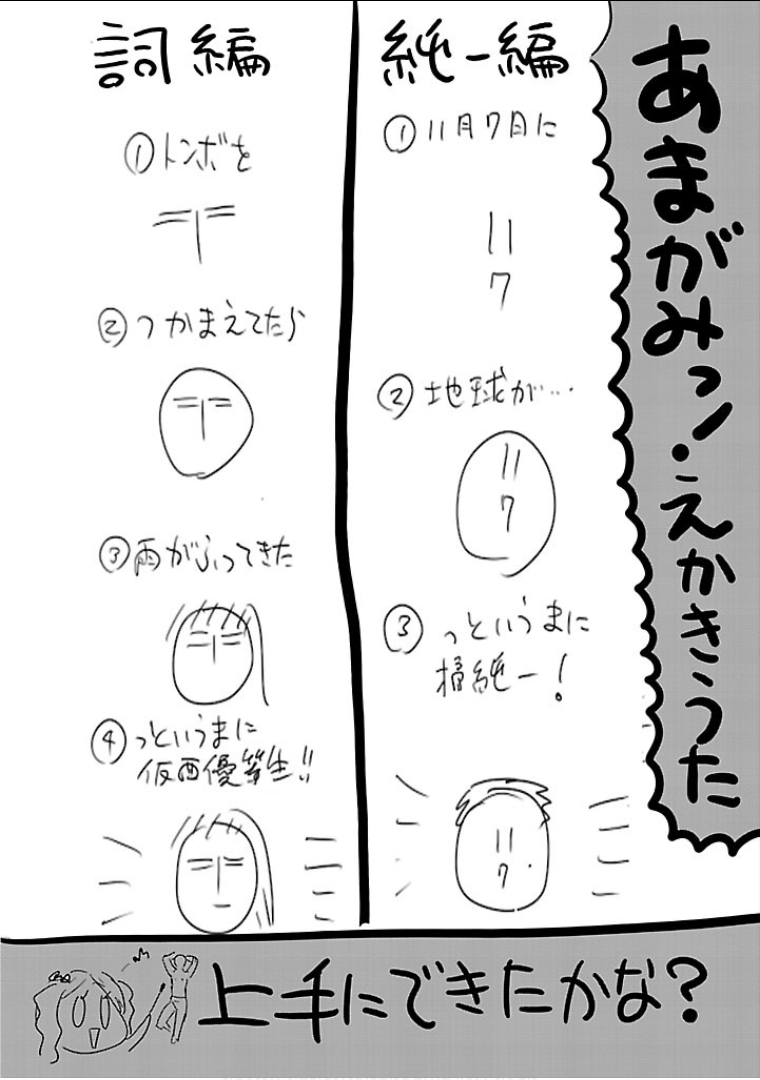 あまがみッ!えかきうた
純一編
① 11月7日に
11
7
② 地球が…
11
7
③ っというまに
橘純一!
11
7
詞編
① トンボを
② つかまえてたら
③ 雨がふってきた
④ っというまに
仮面優等生!!
上手にできたかな?